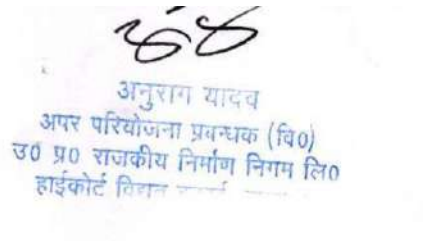 अनुराग यादव
अपर परियोजना प्रबन्धक (वि0)
उ0 प्र0 राजकीय निर्माण निगम लि0
हाईकोर्ट